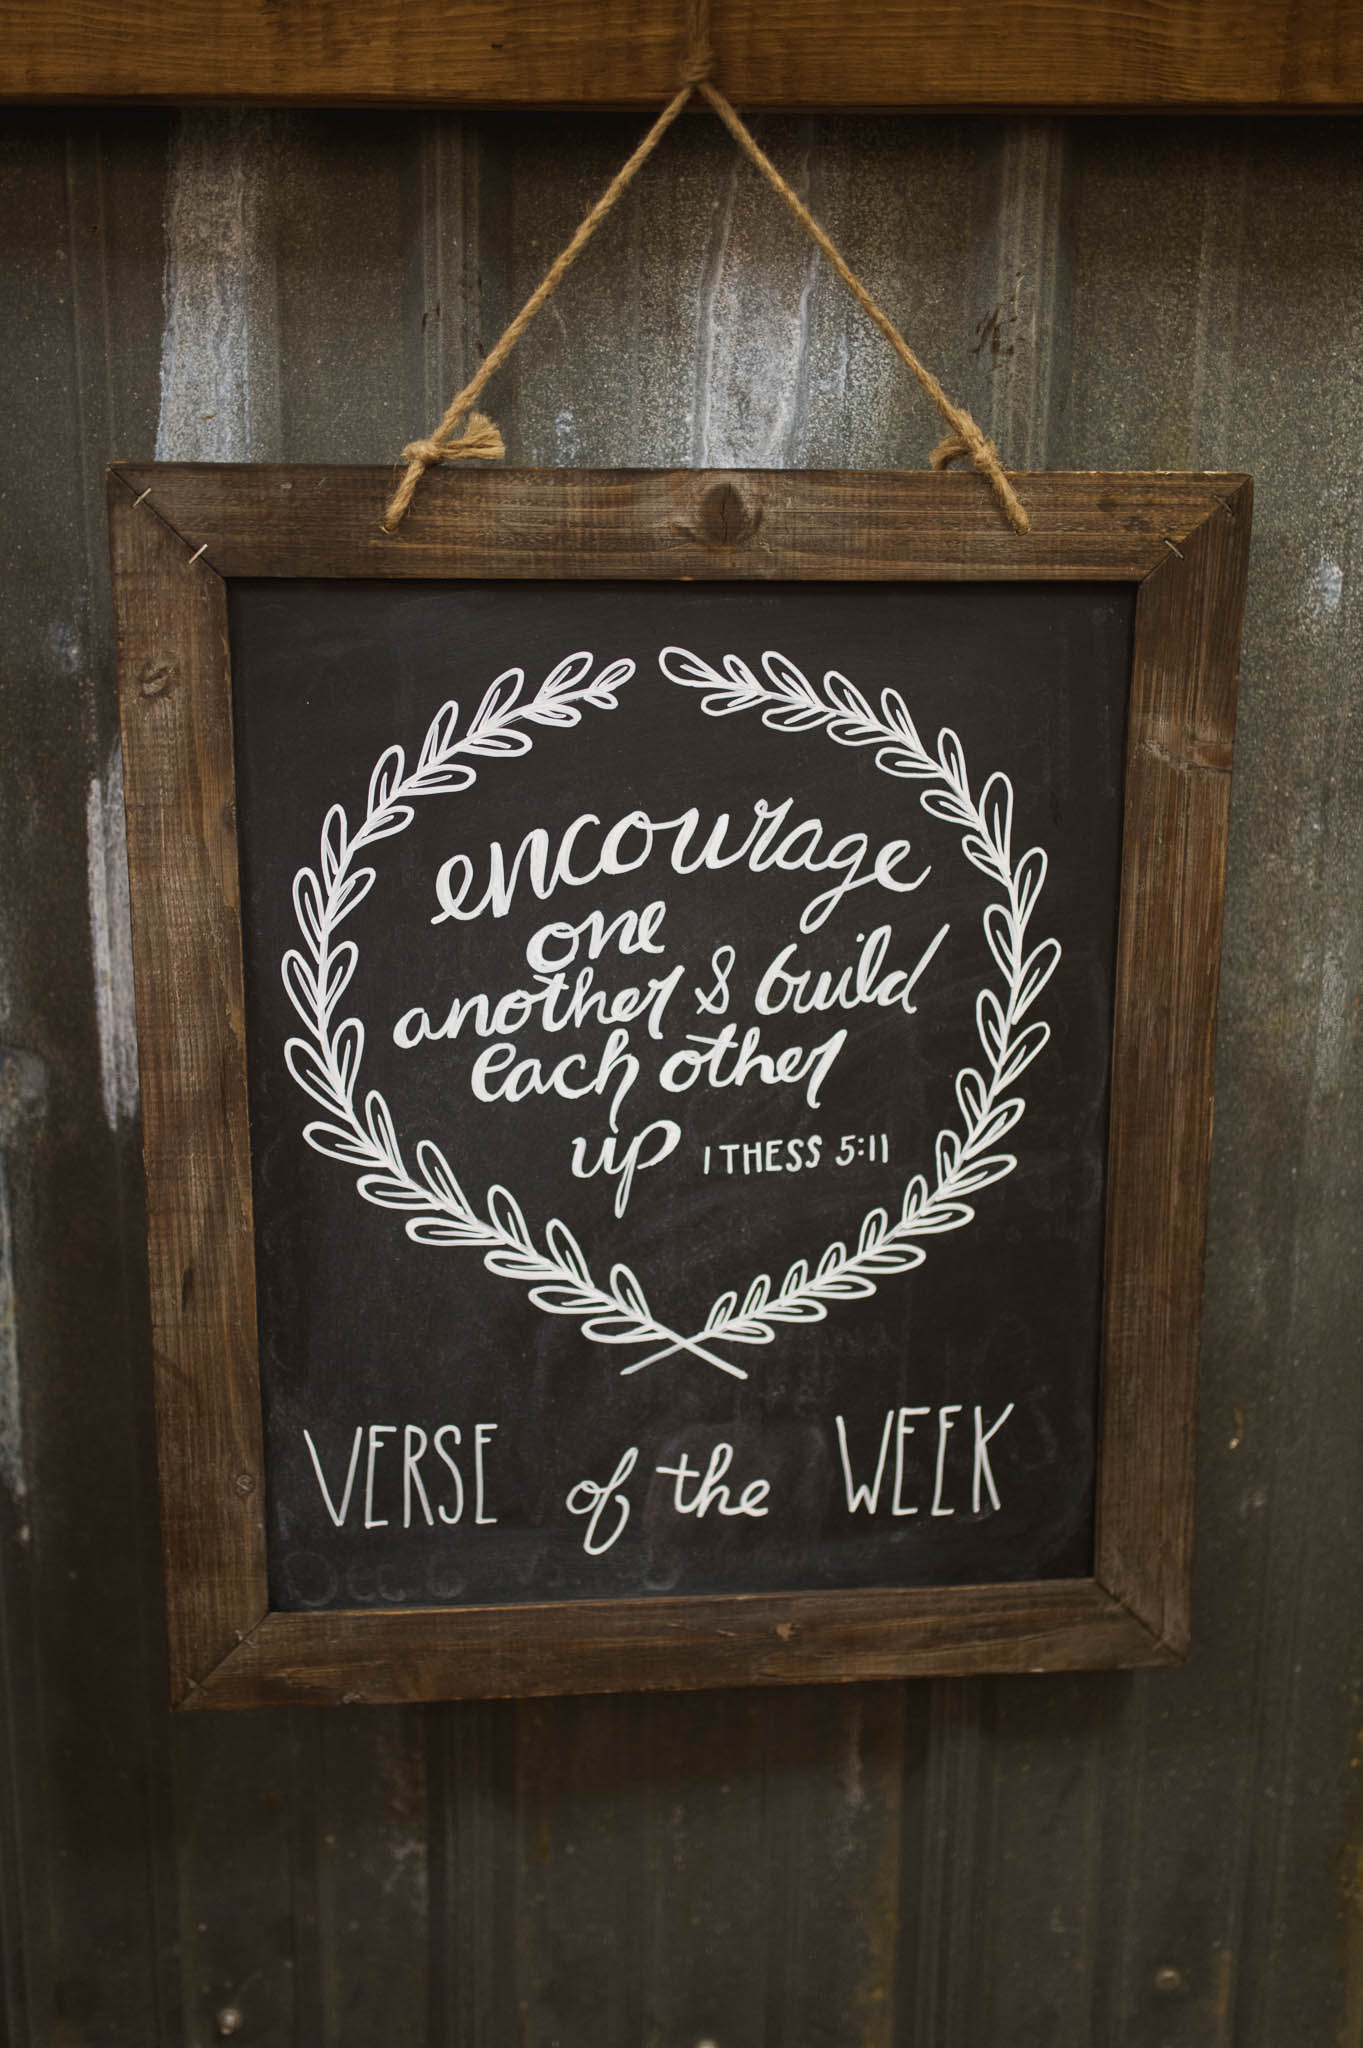 encourage
one
another & build
each other
up 1 THESS 5:11
VERSE of the WEEK
Dec. 6